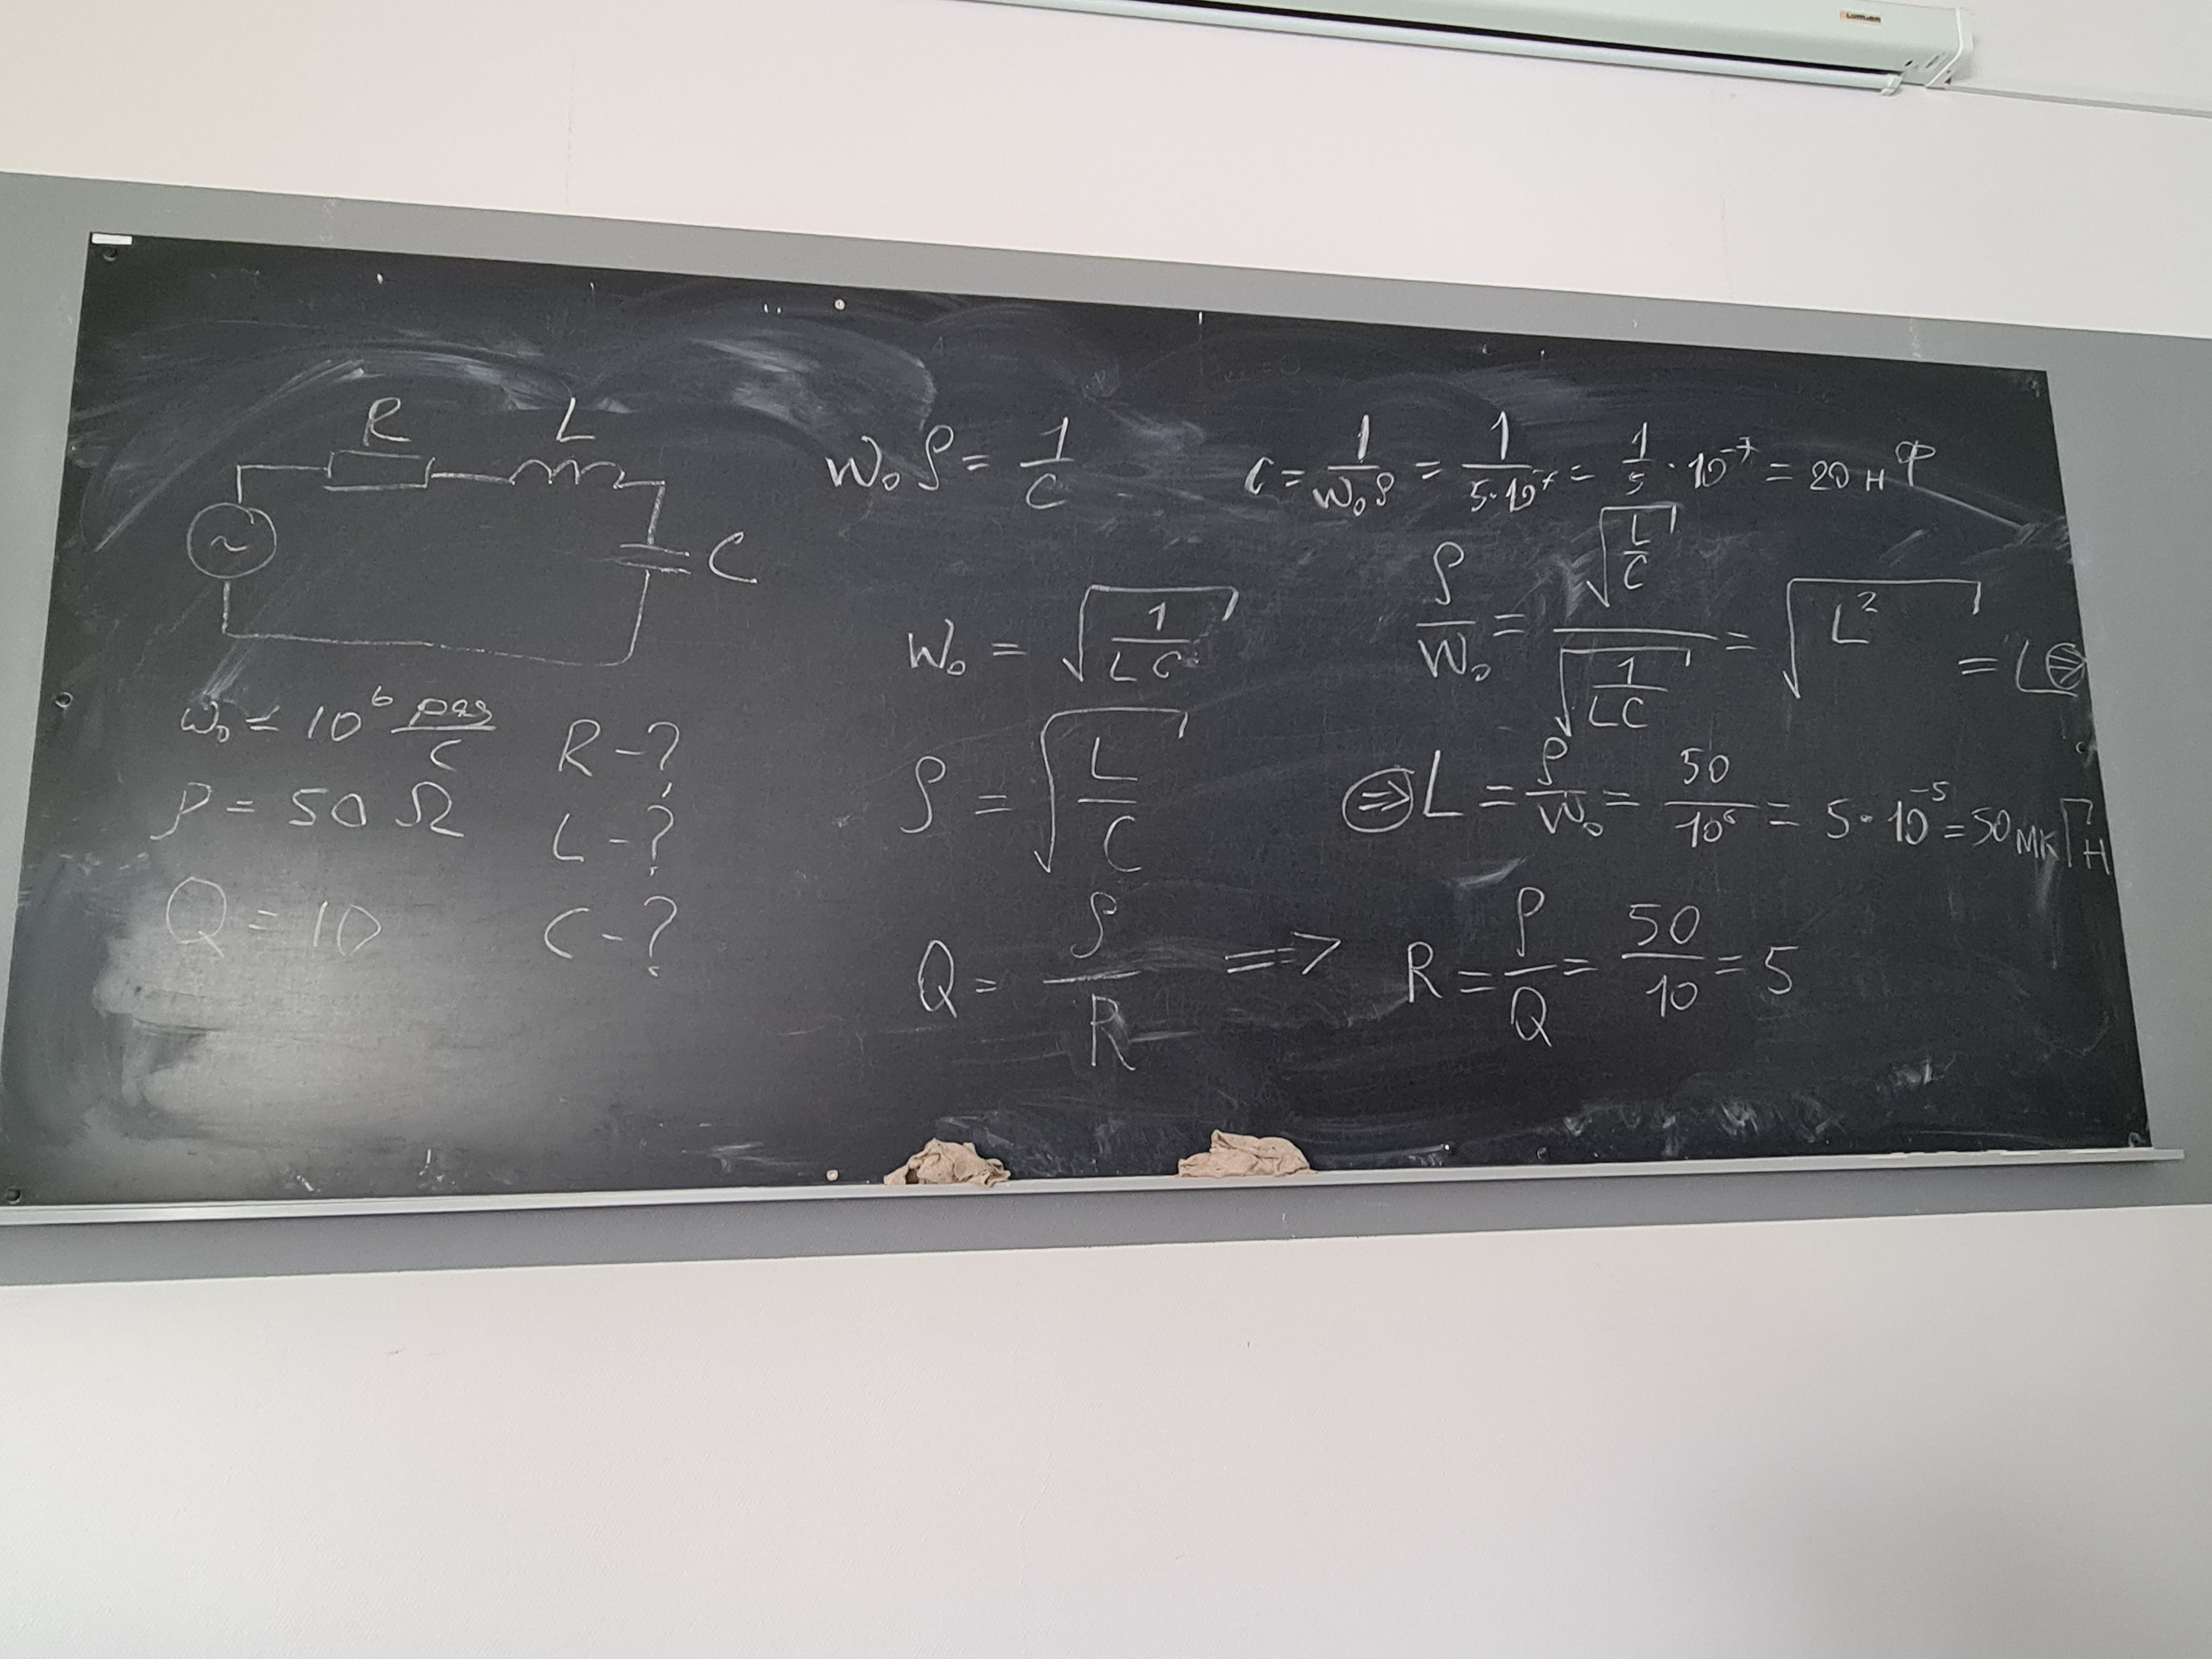 R
L
C
ω₀ = 10⁶ рад/с
ρ = 50 Ω
Q = 10
R - ?
L - ?
C - ?
W₀ρ = 1/C
W₀ = √(1/(LC))
ρ = √(L/C)
Q = ρ/R =>
C = 1/(W₀ρ) = 1/(5·10⁷) = 1/5 · 10⁻⁷ = 20 нФ
ρ/W₀ = √(L/C) / √(1/(LC)) = √(L²) = L ⇒
⇒ L = ρ/W₀ = 50/10⁶ = 5·10⁻⁵ = 50 мкГн
R = ρ/Q = 50/10 = 5